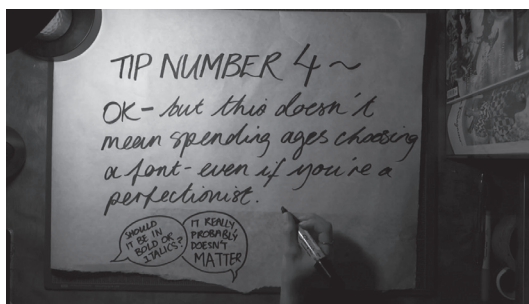 TIP NUMBER 4 ~
OK - but this doesn't
mean spending ages choosing
a font - even if you're a
perfectionist.
SHOULD
IT BE IN
BOLD OR
ITALICS?
IT REALLY
PROBABLY
DOESN'T
MATTER